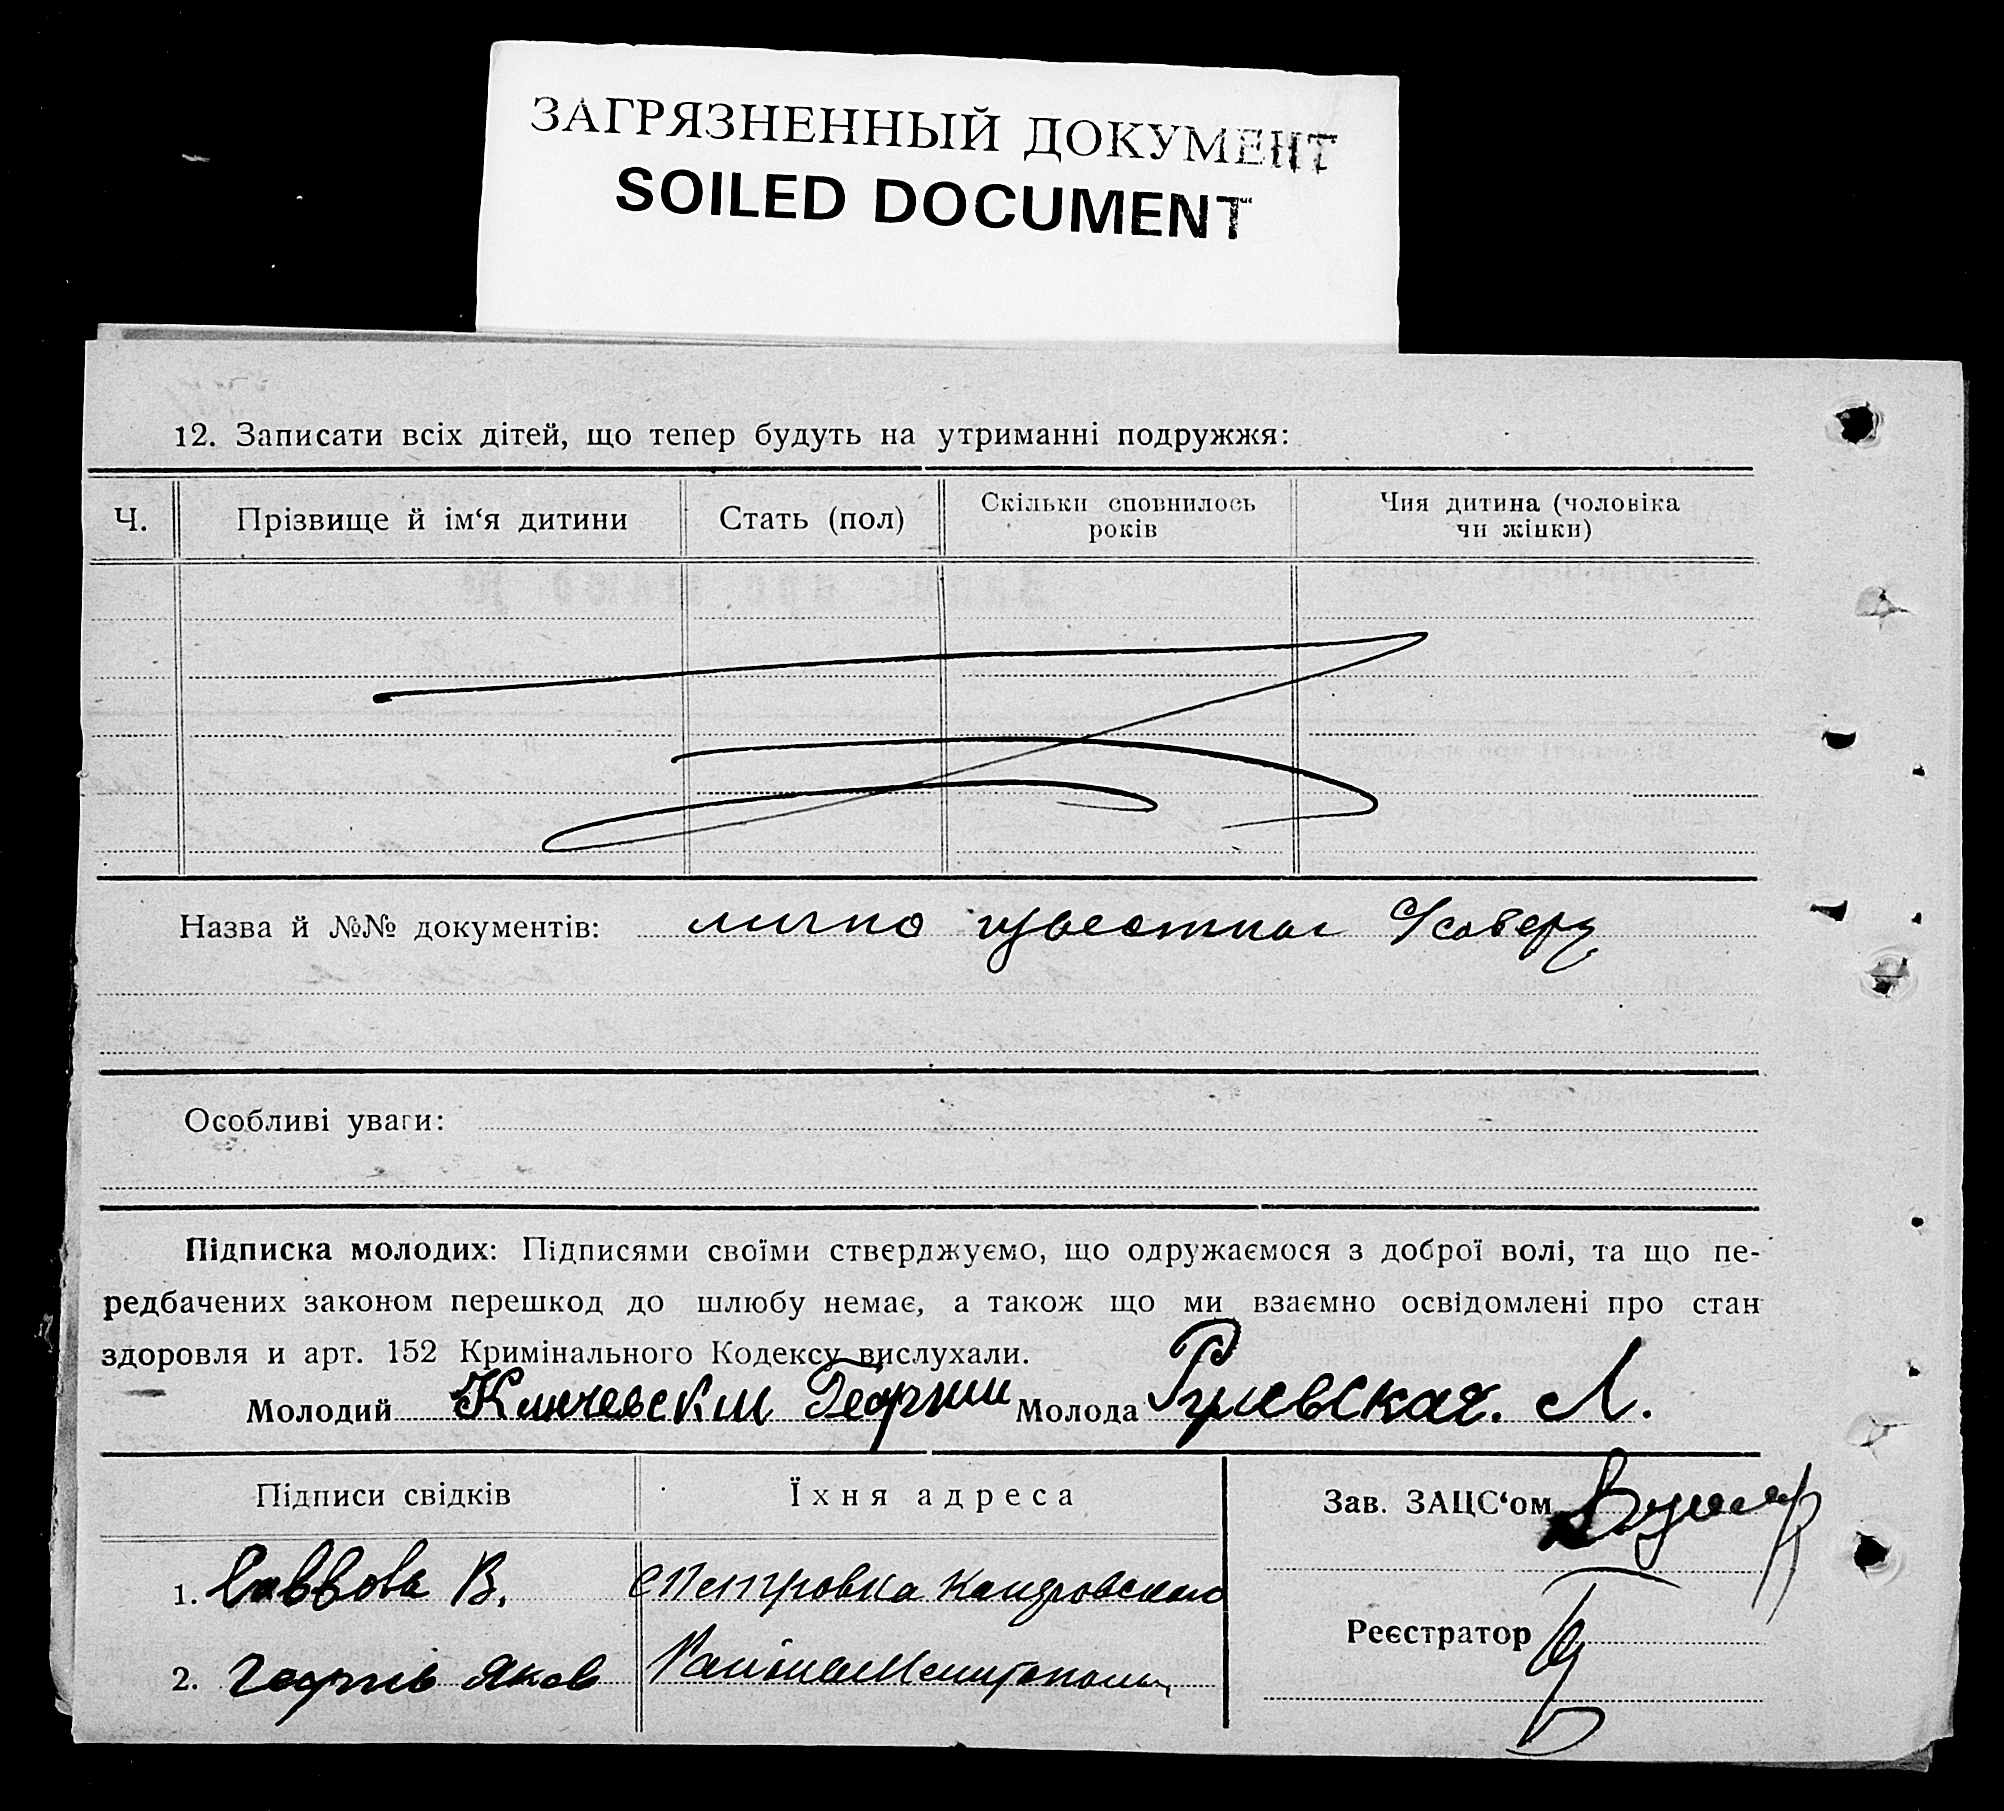 ЗАГРЯЗНЕННЫЙ ДОКУМЕНТ
SOILED DOCUMENT
12. Записати всіх дітей, що тепер будуть на утриманні подружжя:
Ч. Прізвище й ім‘я дитини Стать (пол) Скільки сповнилось років Чия дитина (чоловіка чи жінки)
Назва й №№ документів: лично
Особливі уваги:
Підписка молодих: Підписями своїми стверджуємо, що одружаємося з доброї волі, та що пе-
редбачених законом перешкод до шлюбу немає, а також що ми взаємно освідомлені про стан
здоровля и арт. 152 Кримінального Кодексу вислухали.
Молодий Георгии Молода Л.
Підписи свідків Їхня адреса Зав. ЗАЦС‘ом
1. Саввова В. с Петровка
Реєстратор
2. Яков